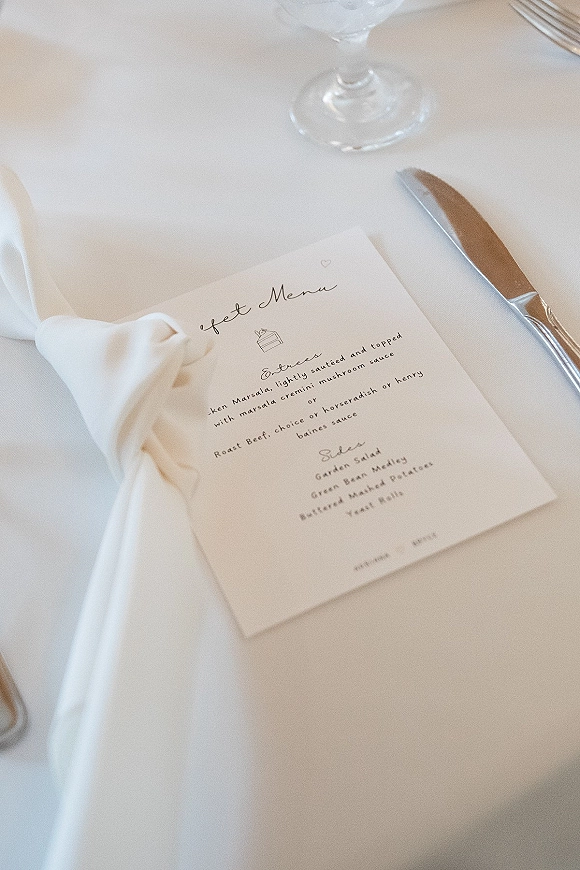 ffet Menu
Entrees
ken Marsala, lightly sautéed and topped
with marsala cremini mushroom sauce
or
Roast Beef, choice or horseradish or henry
baines sauce
Sides
Garden Salad
Green Bean Medley
Buttered Mashed Potatoes
Yeast Rolls